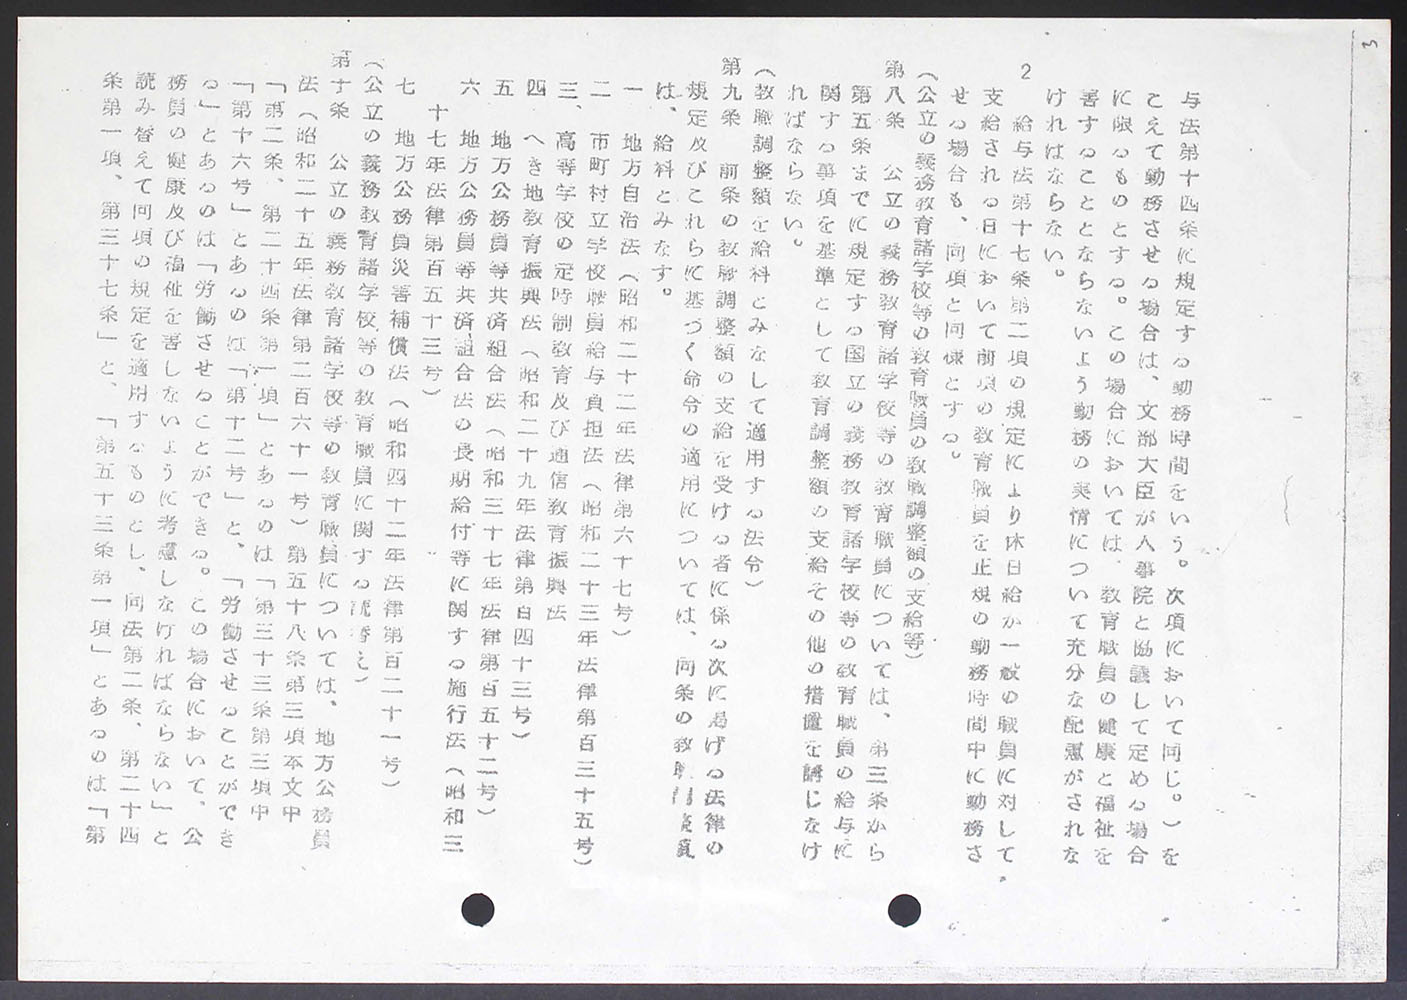 3
与法第十四条に規定する勤務時間をいう。次項において同じ。)を
こえて勤務させる場合は、文部大臣が人事院と協議して定める場合
に限るものとする。この場合においては、教育職員の健康と福祉を
害することとならないよう勤務の実情について充分な配慮がされな
ければならない。
2 給与法第十七条第二項の規定により休日給が一般の職員に対して
支給される日において前項の教育職員を正規の勤務時間中に勤務さ
せる場合も、同項と同様とする。
(公立の義務教育諸学校等の教育職員の教職調整額の支給等)
第八条 公立の義務教育諸学校等の教育職員については、第三条から
第五条までに規定する国立の義務教育諸学校等の教育職員の給与に
関する事項を基準として教育調整額の支給その他の措置を講じなけ
ればならない。
(教職調整額を給料とみなして適用する法令)
第九条 前条の教職調整額の支給を受ける者に係る次に掲げる法律の
規定及びこれらに基づく命令の適用については、同条の教職調整額
は、給料とみなす。
一 地方自治法(昭和二十二年法律第六十七号)
二 市町村立学校職員給与負担法(昭和二十三年法律第百三十五号)
三、高等学校の定時制教育及び通信教育振興法
四 へき地教育振興法(昭和二十九年法律第百四十三号)
五 地方公務員等共済組合法(昭和三十七年法律第百五十二号)
六 地方公務員等共済組合法の長期給付等に関する施行法(昭和三
十七年法律第百五十三号)
七 地方公務員災害補償法(昭和四十二年法律第百二十一号)
(公立の義務教育諸学校等の教育職員に関する読替え)
第十条 公立の義務教育諸学校等の教育職員については、地方公務員
法(昭和二十五年法律第二百六十一号)第五十八条第三項本文中
「第二条、第二十四条第一項」とあるのは「第三十三条第三項中
「第十六号」とあるのは「第十二号」と、「労働させることができ
る」とあるのは「労働させることができる。この場合において、公
務員の健康及び福祉を害しないように考慮しなければならない」と
読み替えて同項の規定を適用するものとし、同法第二条、第二十四
条第一項、第三十七条」と、「第五十三条第一項」とあるのは「第